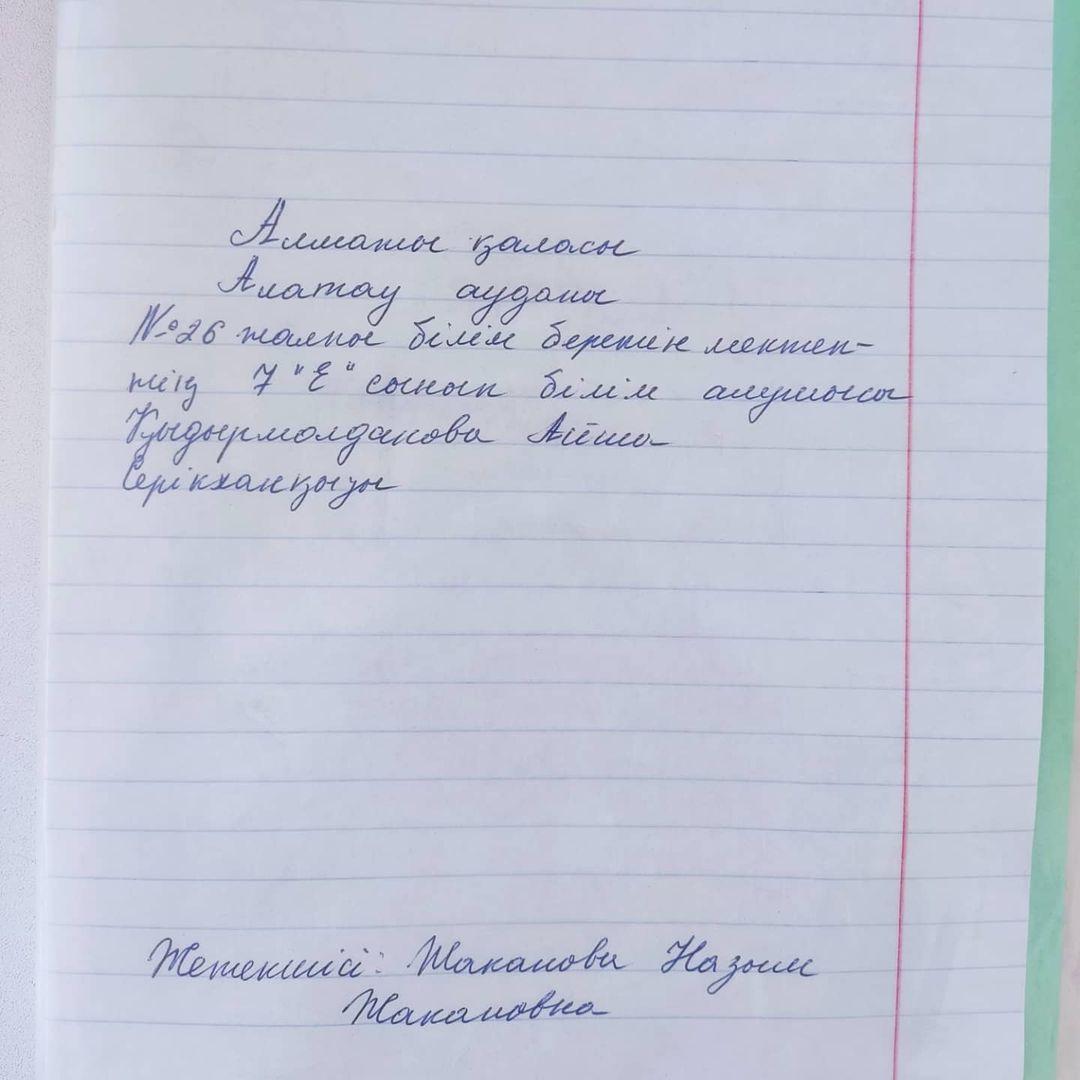 Алматы қаласы
Алатау ауданы
№26 жалпы білім беретін мектеп-
тің 7 "Е" сынып білім алушысы
Қыдырмолданова Айша
Серікханқызы
Жетекшісі: Жаканова Назым
Жакановна